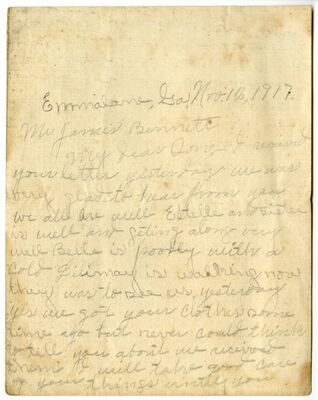 Emmalane, Ga, Nov. 16, 1917.
Mr James Bennett
My dear Son I recived
your letter yesterday we was
very glad to hear from you
we all are well Estelle and sister
is well and geting along very
well Belle is poorly with a
cold Lilimay is walking now
thay was to see us yesterday
yes we got your clothes some
time ago but never could think
to till you about we recived
them I will take good care
of your things until you